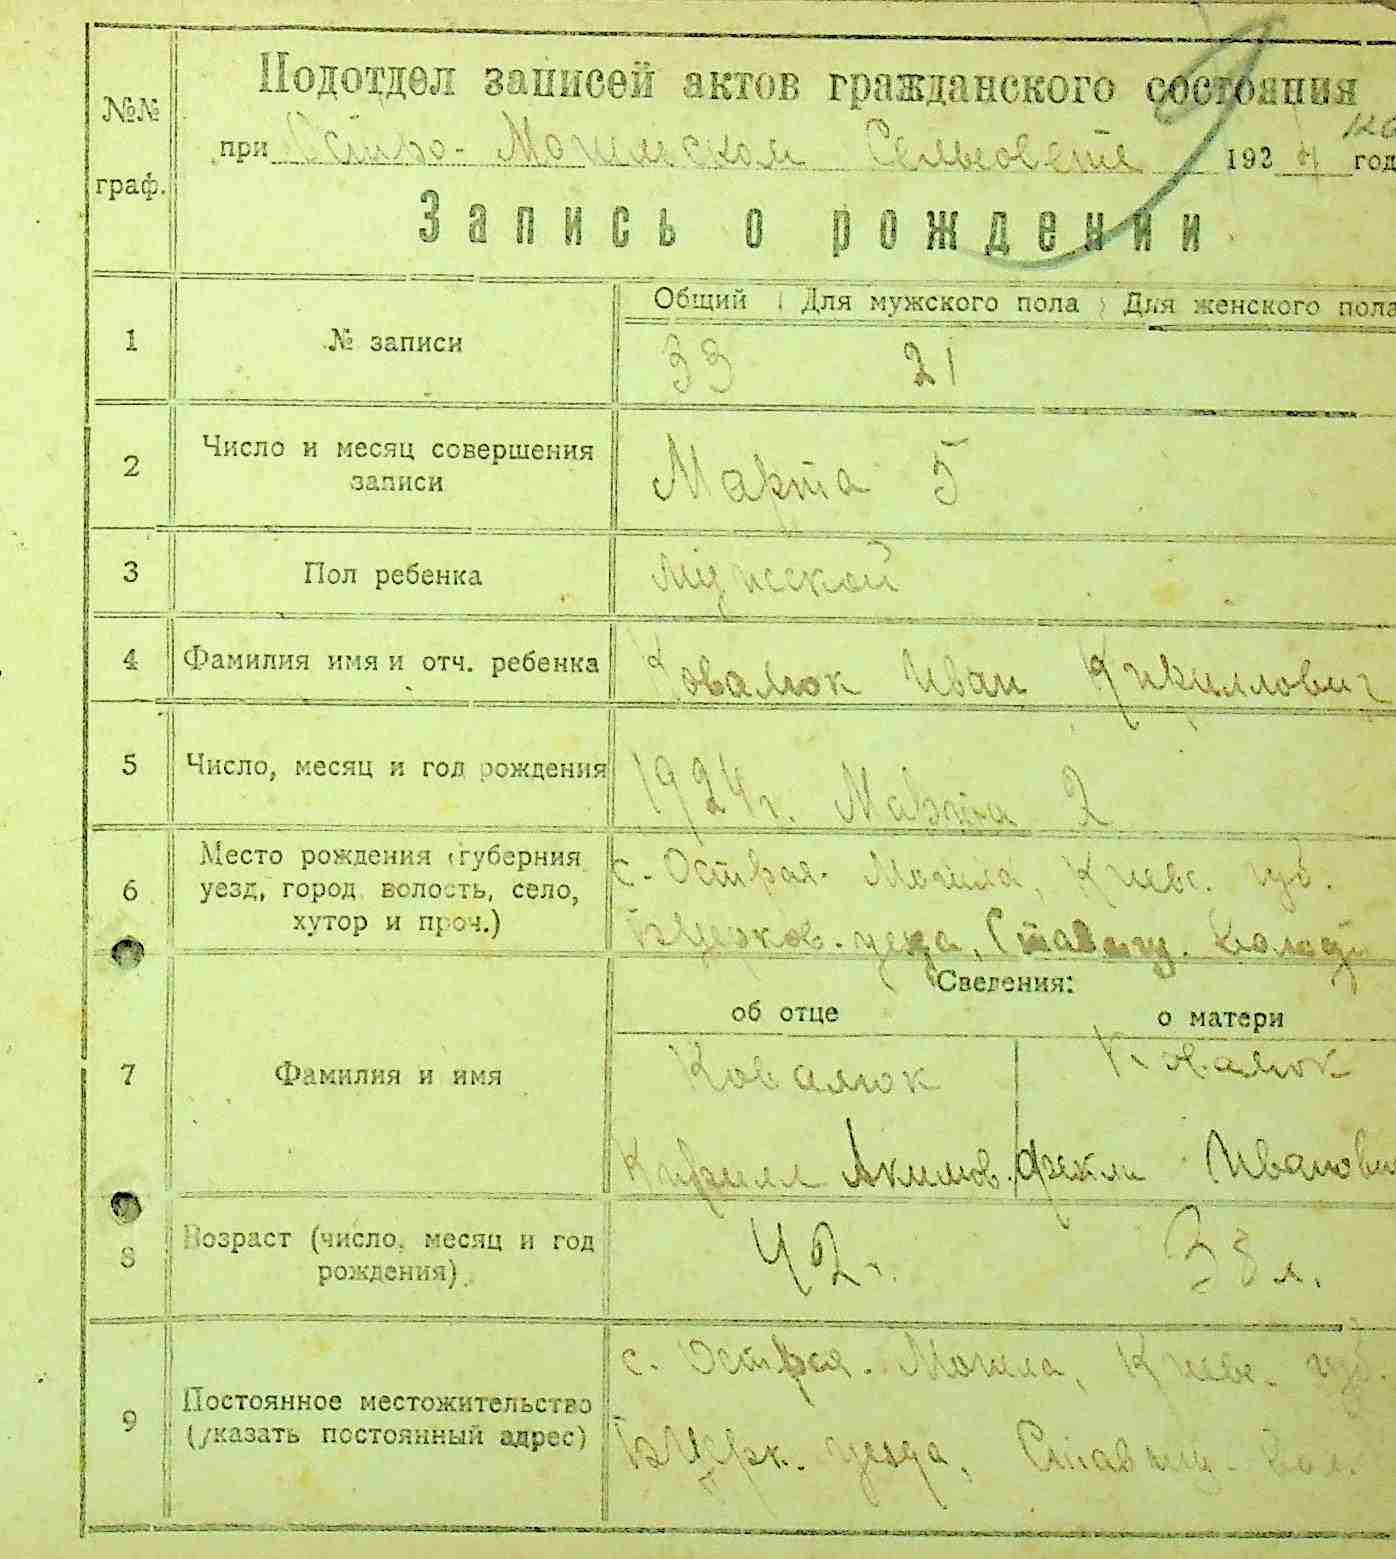 Подотдел записей актов гражданского состояния
№№ граф.
при Остро-Могильском Сельсовете 1924 год
Запись о рождении
Общий Для мужского пола Для женского пола
1 № записи 33 21
2 Число и месяц совершения записи Марта 5
3 Пол ребенка мужской
4 Фамилия имя и отч. ребенка Ковалюк Иван Кириллович
5 Число, месяц и год рождения 1924 г. Марта 2
6 Место рождения (губерния
уезд, город волость, село,
хутор и проч.)
с. Острая-Могила, Киевс. губ.
БЦерков. уезда, Ставищ. Волости
Сведения:
об отце о матери
7 Фамилия и имя
Ковалюк Ковалюк
Кирилл Акимов. Фекли Иванови
8 Возраст (число, месяц и год
рождения)
42 г. 38 л.
9 Постоянное местожительство
(указать постоянный адрес)
с. Острая-Могила, Киевс. губ.
БЦерк. уезда, Ставищ. Вол.